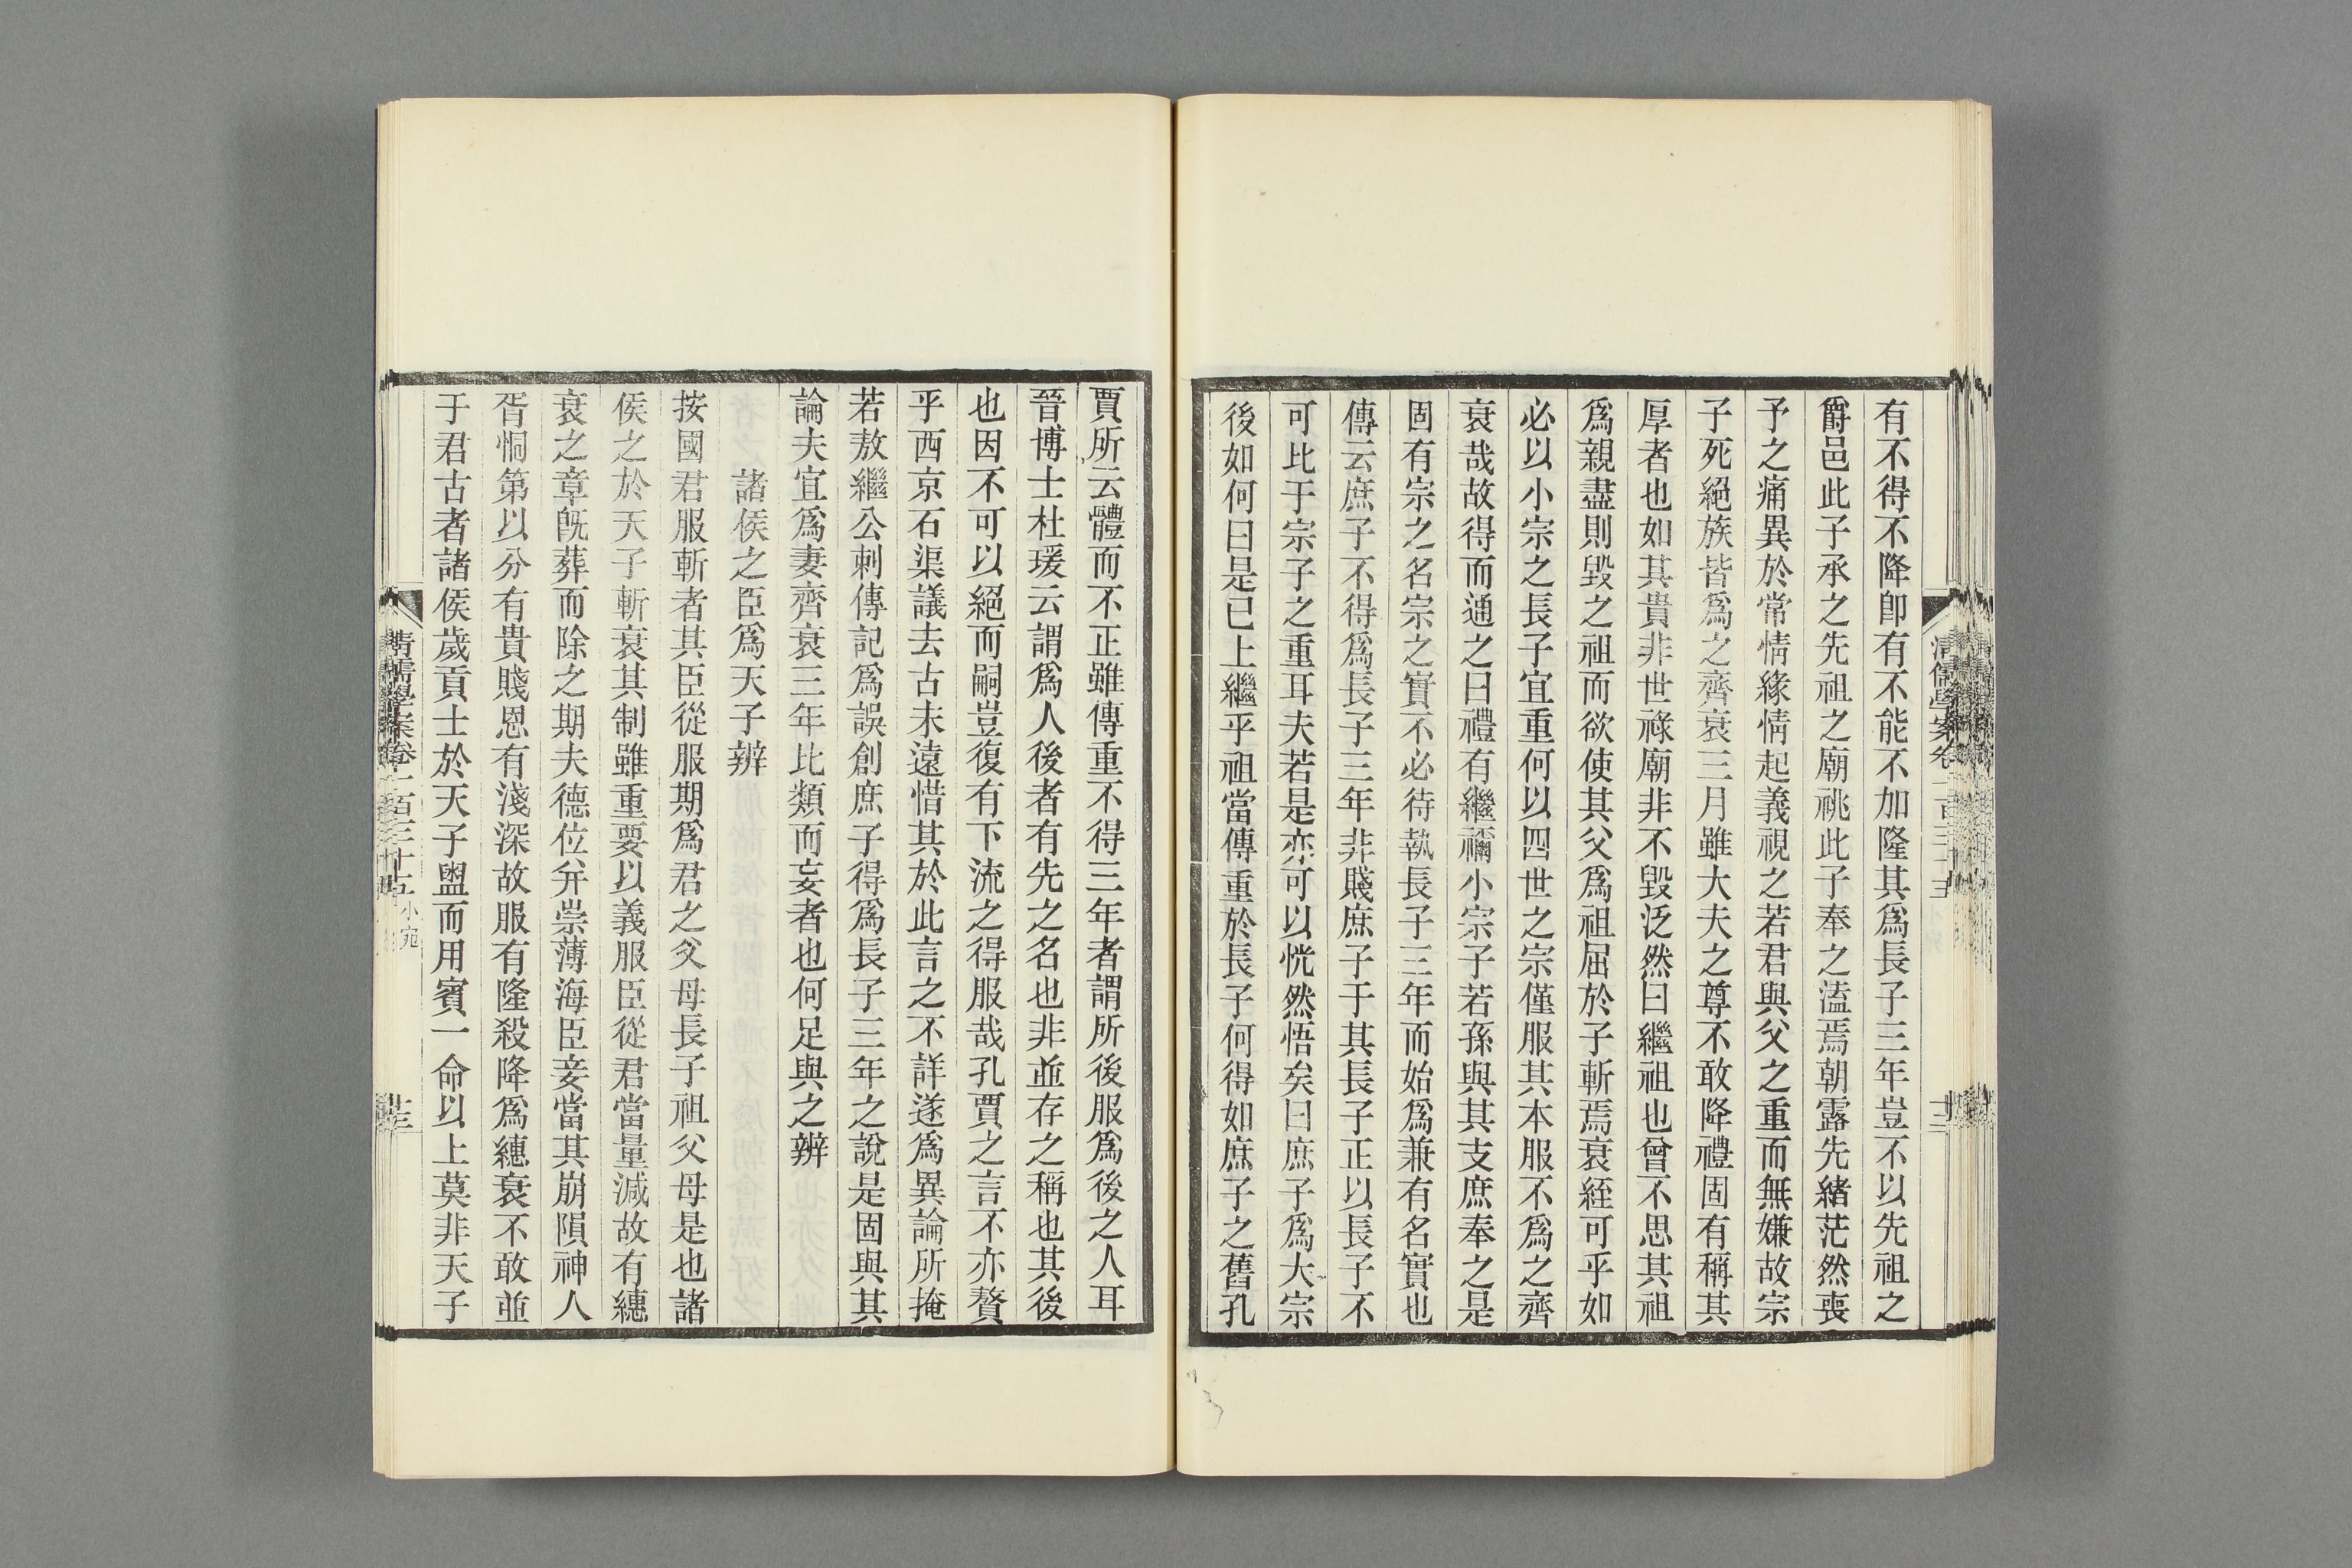 有不得不降卽有不能不加隆其爲長子三年豈不以先祖之
爵邑此子承之先祖之廟祧此子奉之溘焉朝露先緒茫然喪
予之痛異於常情緣情起義視之若君與父之重而無嫌故宗
子死絕族皆爲之齊衰三月雖大夫之尊不敢降禮固有稱其
厚者也如其貴非世祿廟非不毀泛然曰繼祖也曾不思其祖
爲親盡則毀之祖而欲使其父爲祖屈於子斬焉衰絰可乎如
必以小宗之長子宜重何以四世之宗僅服其本服不爲之齊
衰哉故得而通之曰禮有繼禰小宗子若孫與其支庶奉之是
固有宗之名宗之實不必待執長子三年而始爲兼有名實也
傳云庶子不得爲長子三年非賤庶子于其長子正以長子不
可比于宗子之重耳夫若是亦可以恍然悟矣曰庶子爲大宗
後如何曰是已上繼乎祖當傳重於長子何得如庶子之舊孔
賈所云體而不正雖傳重不得三年者謂所後服爲後之人耳
晉博士杜瑗云謂爲人後者有先之名也非並存之稱也其後
也因不可以絕而嗣豈復有下流之得服哉孔賈之言不亦贅
乎西京石渠議去古未遠惜其於此言之不詳遂爲異論所掩
若敖繼公刺傳記爲誤創庶子得爲長子三年之說是固與其
論夫宜爲妻齊衰三年比類而妄者也何足與之辨
諸侯之臣爲天子辨
按國君服斬者其臣從服期爲君之父母長子祖父母是也諸
侯之於天子斬衰其制雖重要以義服臣從君當量減故有繐
衰之章旣葬而除之期夫德位弁崇薄海臣妾當其崩隕神人
胥恫第以分有貴賤恩有淺深故服有隆殺降爲繐衰不敢並
于君古者諸侯歲貢士於天子盥而用賓一命以上莫非天子
清儒學案卷一百三十五 小宛